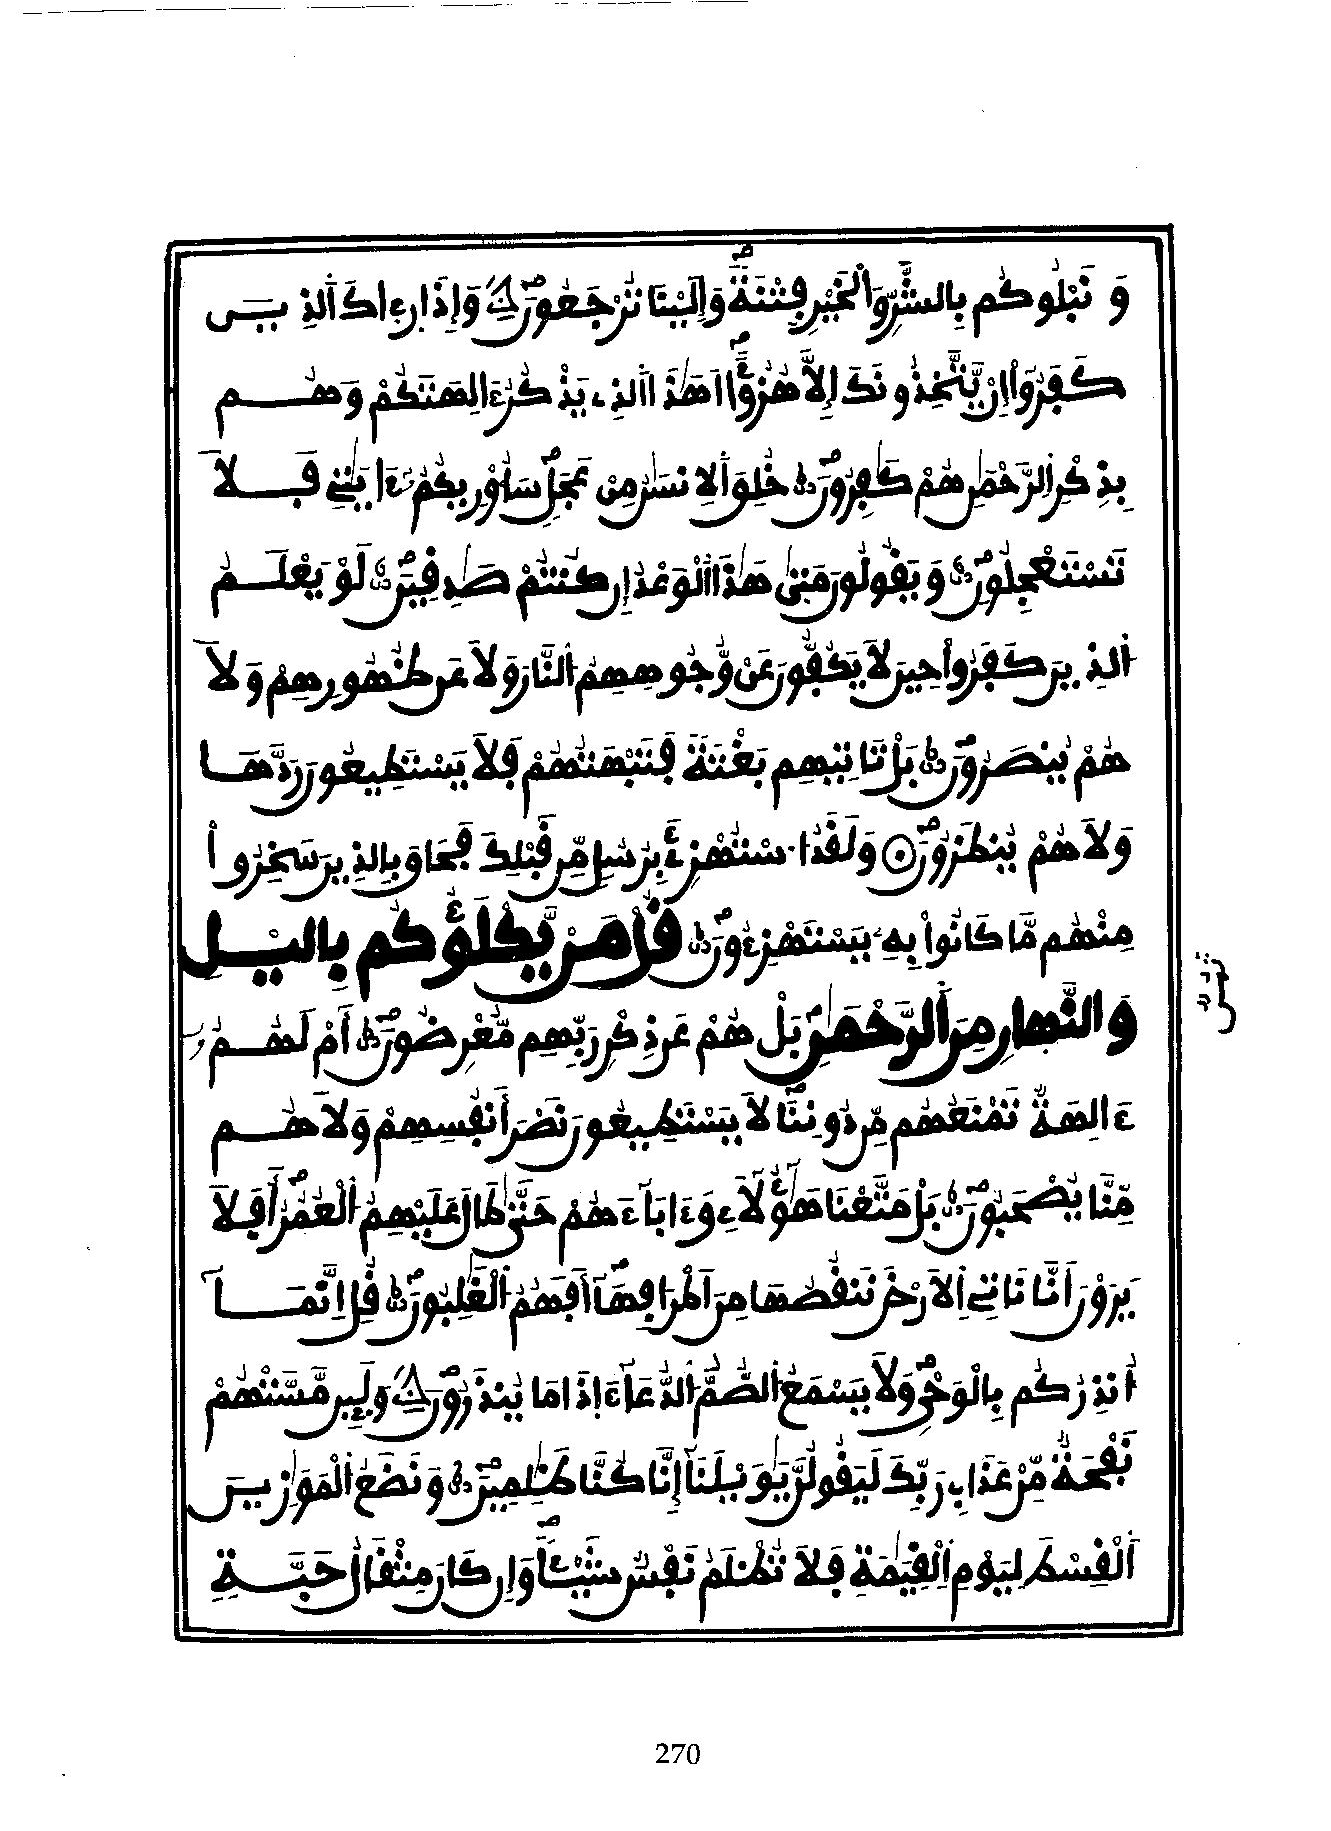 وَنَبْلُوكُم بِالشَّرِّ وَالْخَيْرِ فِتْنَةً وَإِلَيْنَا تُرْجَعُونَ وَإِذَا رِءَاكَ اَلذِيـــنَ
كَفَرُوٓاْ إِنْ يَّتَّخِذُونَكَ إِلَّا هُزُؤًا اَهَٰذَا اَلذِے يَذْكُرُ ءَالِهَتَكُمْ وَهُـــم
بِذِكْرِ اِلرَّحْمَٰنِ هُمْ كَٰفِرُونَ خُلِقَ اَلِانسَٰنُ مِنْ عَجَلٍ سَأُوْرِيكُمُۥٓ ءَايَٰتِے فَـــلَا
تَسْتَعْجِلُونِ وَيَقُولُونَ مَتَىٰ هَٰذَا اَلْوَعْدُ إِن كُنتُمْ صَٰدِقِينَ لَوْ يَعْلَـــمُ
اُلذِينَ كَفَرُواْ حِينَ لَا يَكُفُّونَ عَنْ وُّجُوهِهِمُ اُلنَّارَ وَلَا عَن ظُهُورِهِمْ وَلَا
هُمْ يُنصَرُونَ بَلْ تَاتِيهِم بَغْتَةً فَتَبْهَتُهُمْ فَلَا يَسْتَطِيعُونَ رَدَّهَـــا
وَلَا هُمْ يُنظَرُونَ وَلَقَدُ اُ۟سْتُهْزِئَ بِرُسُلٍ مِّن قَبْلِكَ فَحَاقَ بِالذِينَ سَخِرُواْ
مِنْهُم مَّا كَانُواْ بِهِۦ يَسْتَهْزِءُونَ قُلْ مَنْ يَّكْلَؤُكُم بِاليْـــلِ
وَالنَّهارِ مِنَ اَلرَّحْمَٰنِ بَلْ هُمْ عَن ذِكْرِ رَبِّهِم مُّعْرِضُونَ أَمْ لَهُـــمُۥٓ
ءَالِهَةٌ تَمْنَعُهُم مِّن دُونِنَا لَا يَسْتَطِيعُونَ نَصْرَ أَنفُسِهِمْ وَلَا هُـــم
مِّنَّا يُصْحَبُونَ بَلْ مَتَّعْنَا هَٰٓؤُلَآءِ وَءَابَآءَهُمْ حَتَّىٰ طَالَ عَلَيْهِمُ اُلْعُمُرُ أَفَلَا
يَرَوْنَ أَنَّا نَاتِے اِلَارْضَ نَنقُصُهَا مِنَ اَطْرَافِهَآ أَفَهُمُ اُلْغَٰلِبُونَ قُلِ اِنَّمَـــآ
أُنذِرُكُم بِالْوَحْيِ وَلَا يَسْمَعُ اُلصُّمُّ اُلدُّعَآءَ اِذَا مَا يُنذَرُونَ وَلَئِن مَّسَّتْهُمْ
نَفْحَةٌ مِّنْ عَذَابِ رَبِّكَ لَيَقُولُنَّ يَٰوَيْلَنَآ إِنَّا كُنَّا ظَٰلِمِينَ وَنَضَعُ اُلْمَوَٰزِيـــنَ
اَلْقِسْطَ لِيَوْمِ اِلْقِيَٰمَةِ فَلَا تُظْلَمُ نَفْسٌ شَيْـًٔا وَإِن كَانَ مِثْقَالُ حَبَّـــةٍ
270